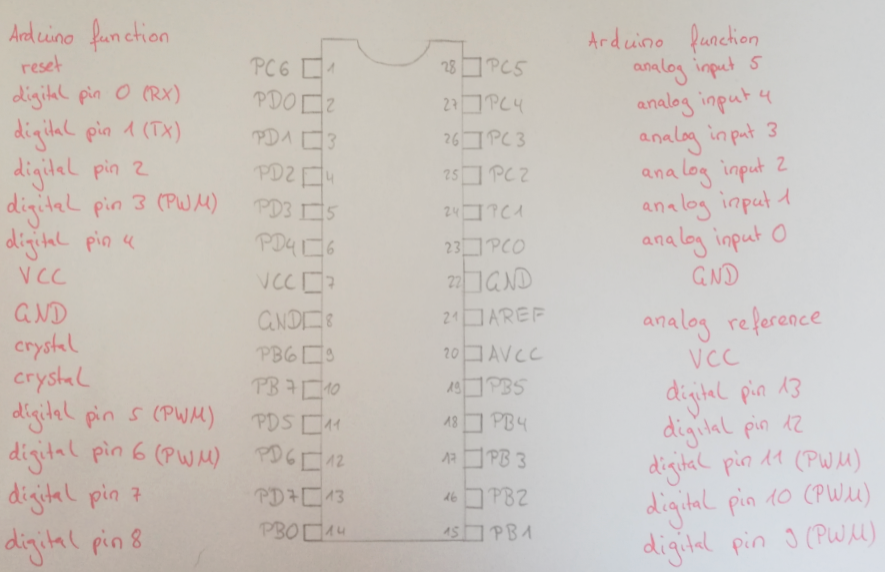 Arduino function Arduino function
reset PC6 1 28 PC5 analog input 5
digital pin 0 (RX) PD0 2 27 PC4 analog input 4
digital pin 1 (TX) PD1 3 26 PC3 analog input 3
digital pin 2 PD2 4 25 PC2 analog input 2
digital pin 3 (PWM) PD3 5 24 PC1 analog input 1
digital pin 4 PD4 6 23 PC0 analog input 0
VCC VCC 7 22 GND GND
GND GND 8 21 AREF analog reference
crystal PB6 9 20 AVCC VCC
crystal PB7 10 19 PB5 digital pin 13
digital pin 5 (PWM) PD5 11 18 PB4 digital pin 12
digital pin 6 (PWM) PD6 12 17 PB3 digital pin 11 (PWM)
digital pin 7 PD7 13 16 PB2 digital pin 10 (PWM)
digital pin 8 PB0 14 15 PB1 digital pin 9 (PWM)